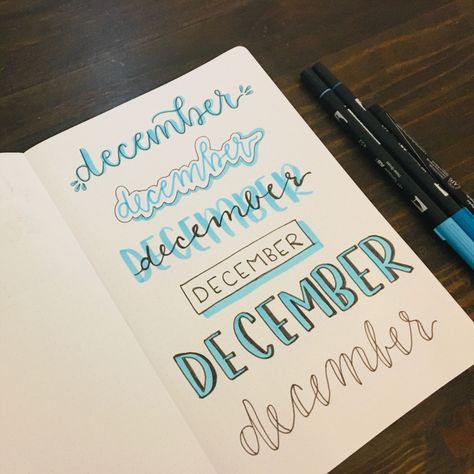 december
december
DECEMBER
december
DECEMBER
DECEMBER
december